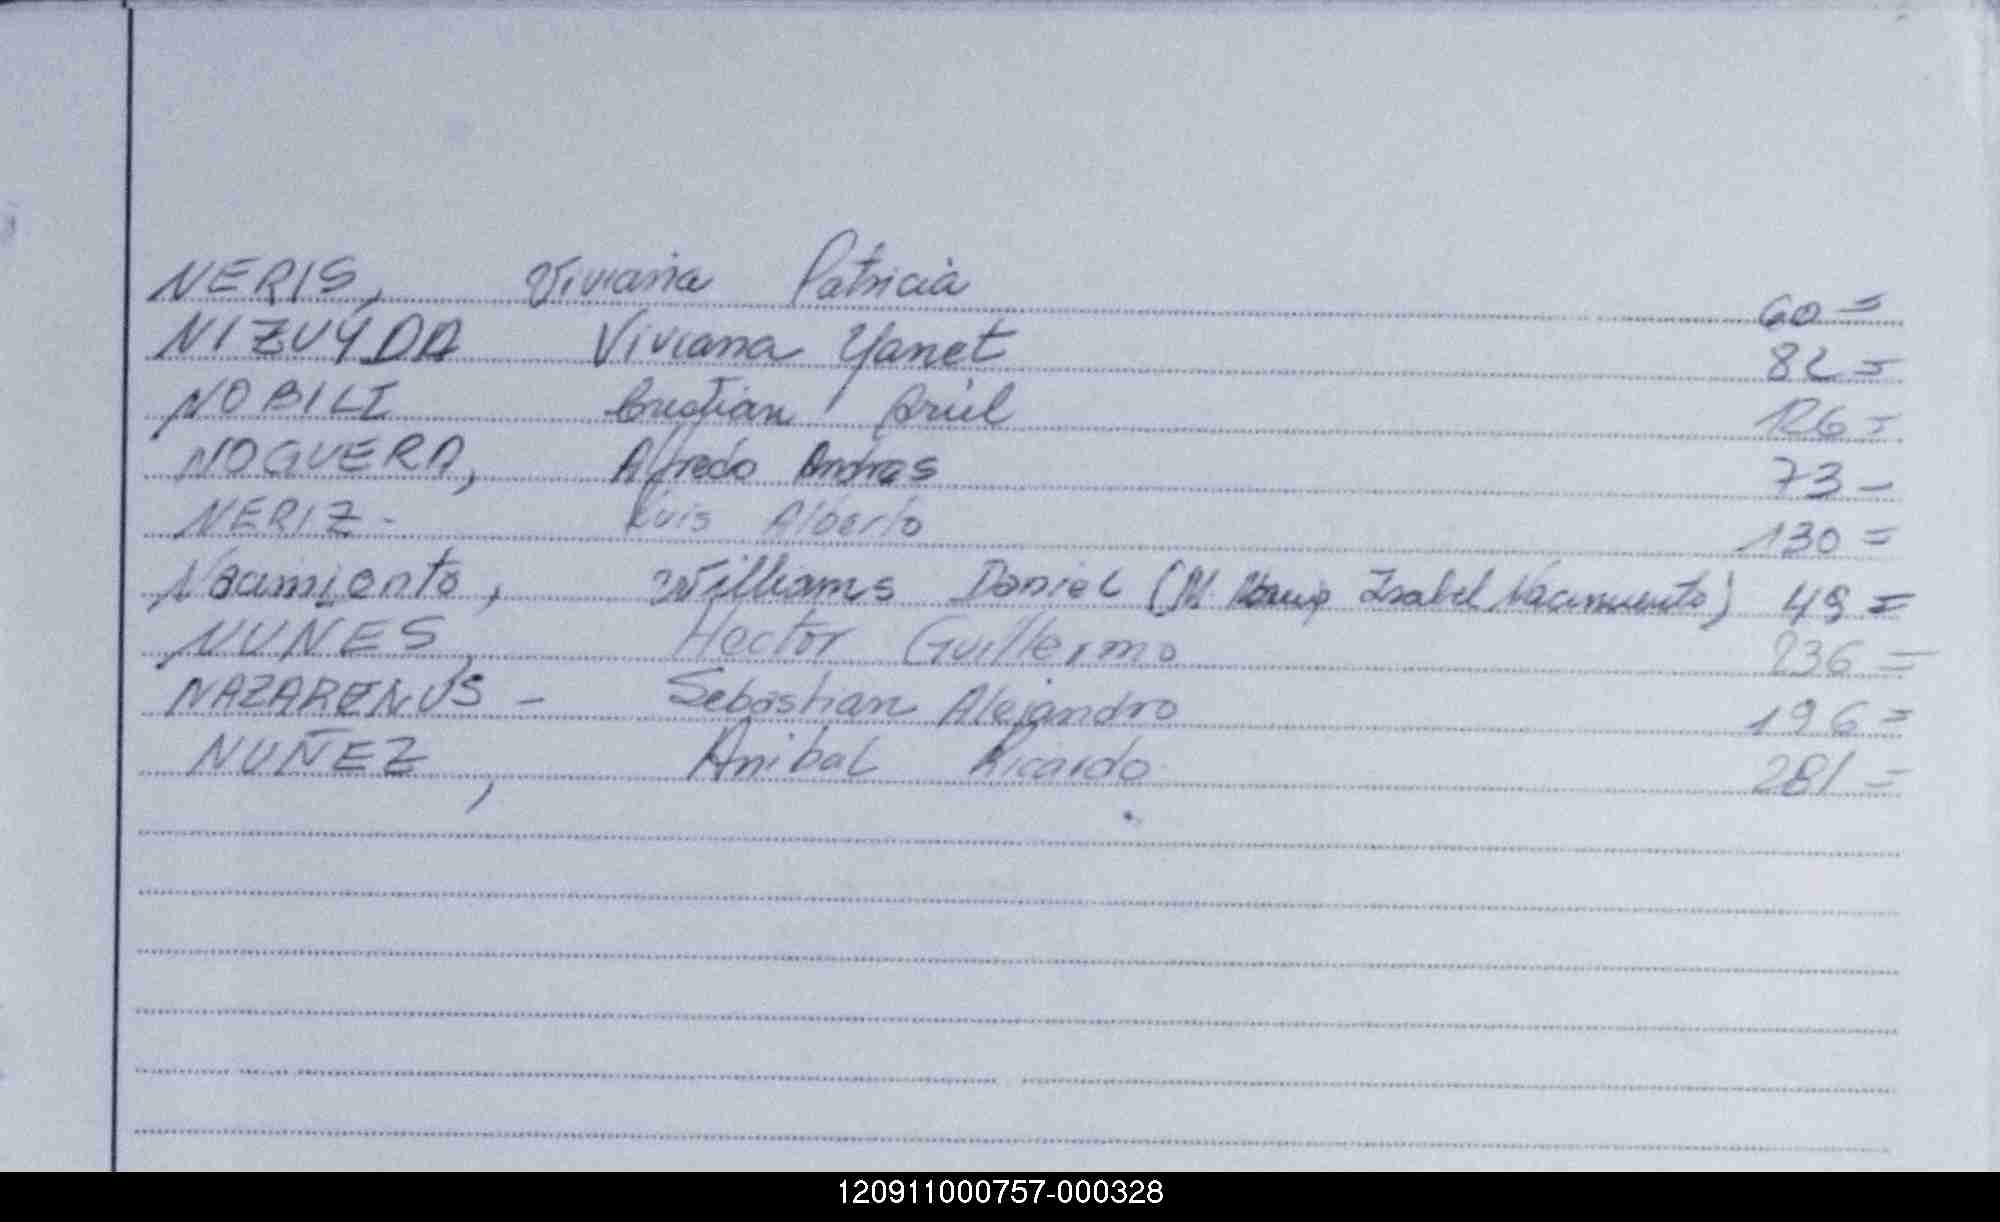 NERIS, Viviana Patricia 60=
NIZUYDA Viviana Yanet 82=
NOBILI Cristian Ariel 126=
NOGUERA, Alfredo Andras 73-
NERIZ- Luis Alberto 130=
Nacimiento, Williams Daniel (M. Isabel Nacimiento) 49=
NUNES, Hector Guillermo 236=
NAZARENUS - Sebastian Alejandro 196=
NUÑEZ, Anibal Ricardo 281=
120911000757-000328